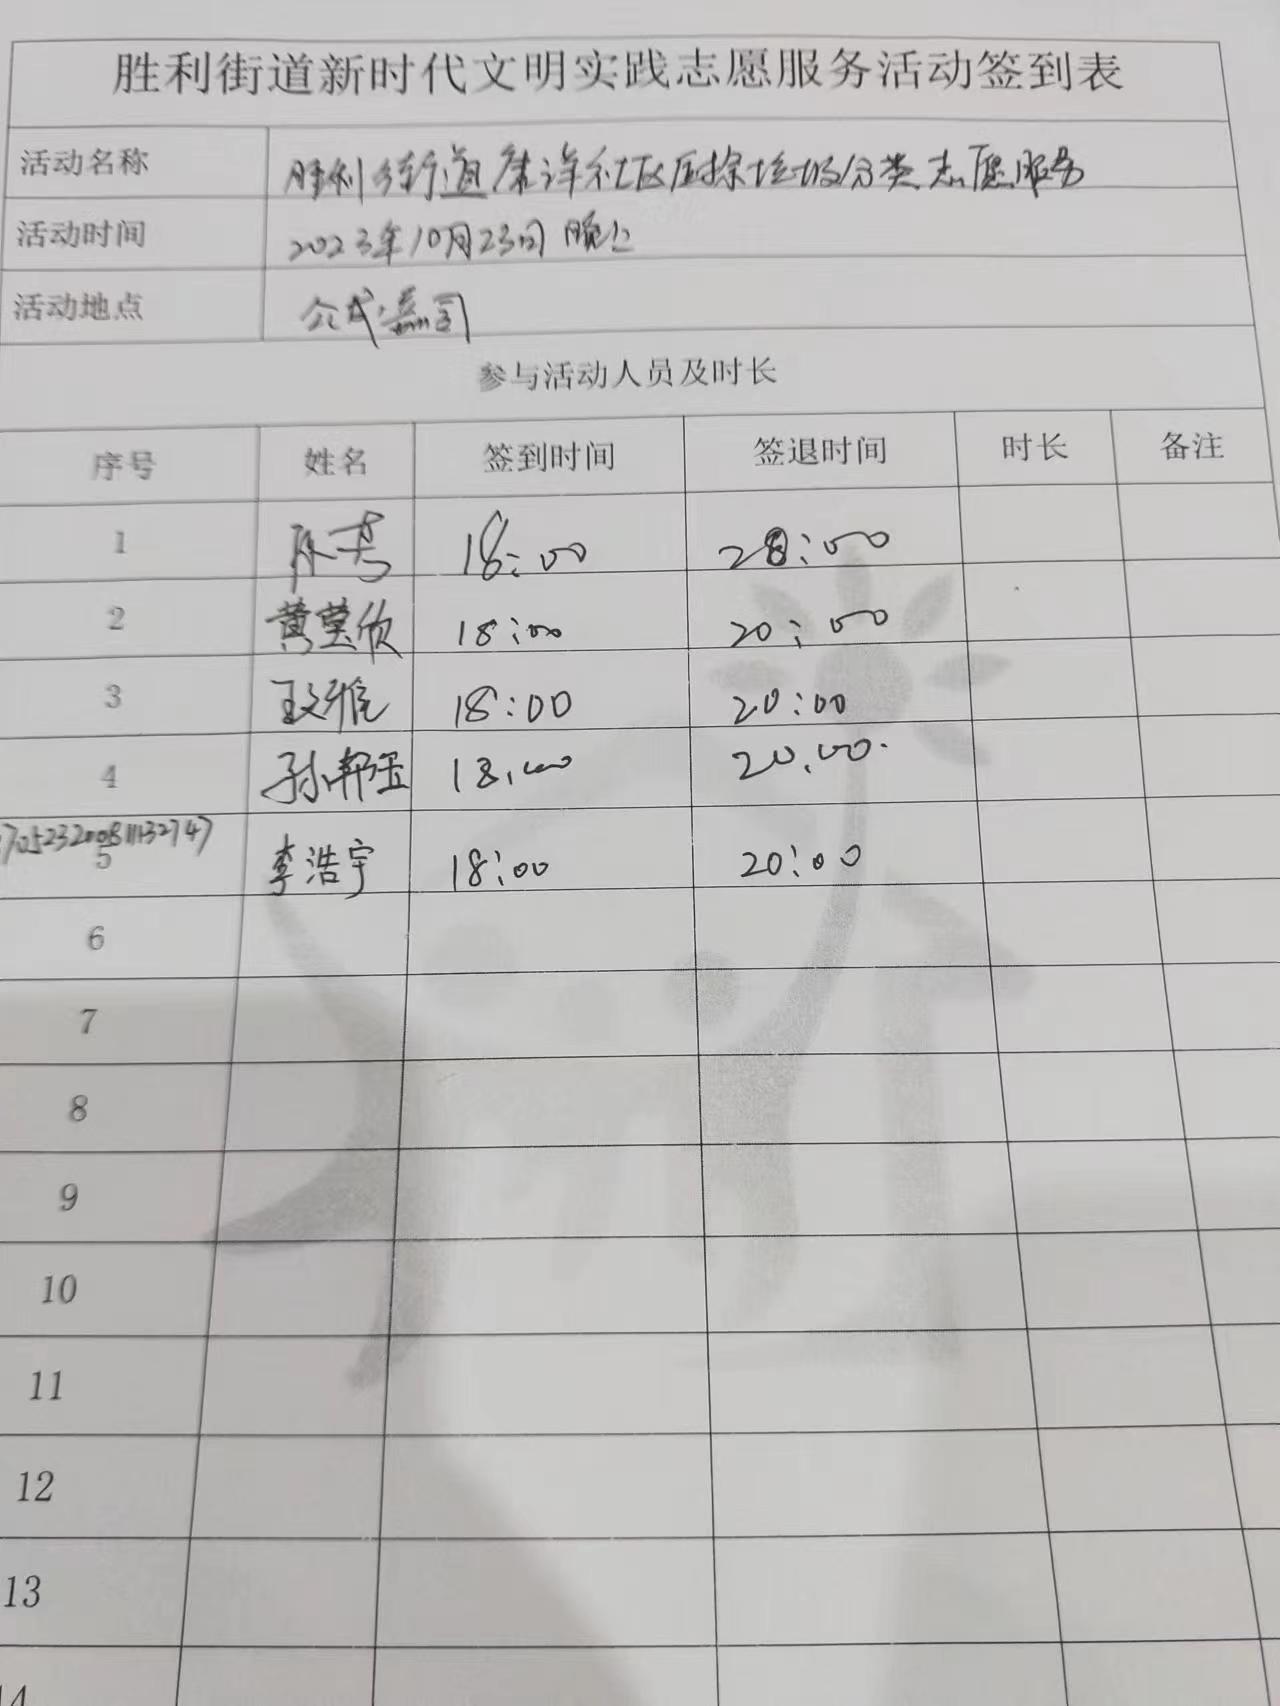 胜利街道新时代文明实践志愿服务活动签到表
活动名称 胜利街道康洋社区 垃圾分类志愿服务
活动时间 2023年10月23日 晚上
活动地点
参与活动人员及时长
序号 姓名 签到时间 签退时间 时长 备注
1 18:00 20:00
2 黄莹欣 18:00 20:00
3 王文雅 18:00 20:00
4 孙邦玉 18:00 20:00
5 李浩宇 18:00 20:00
6
7
8
9
10
11
12
13
14